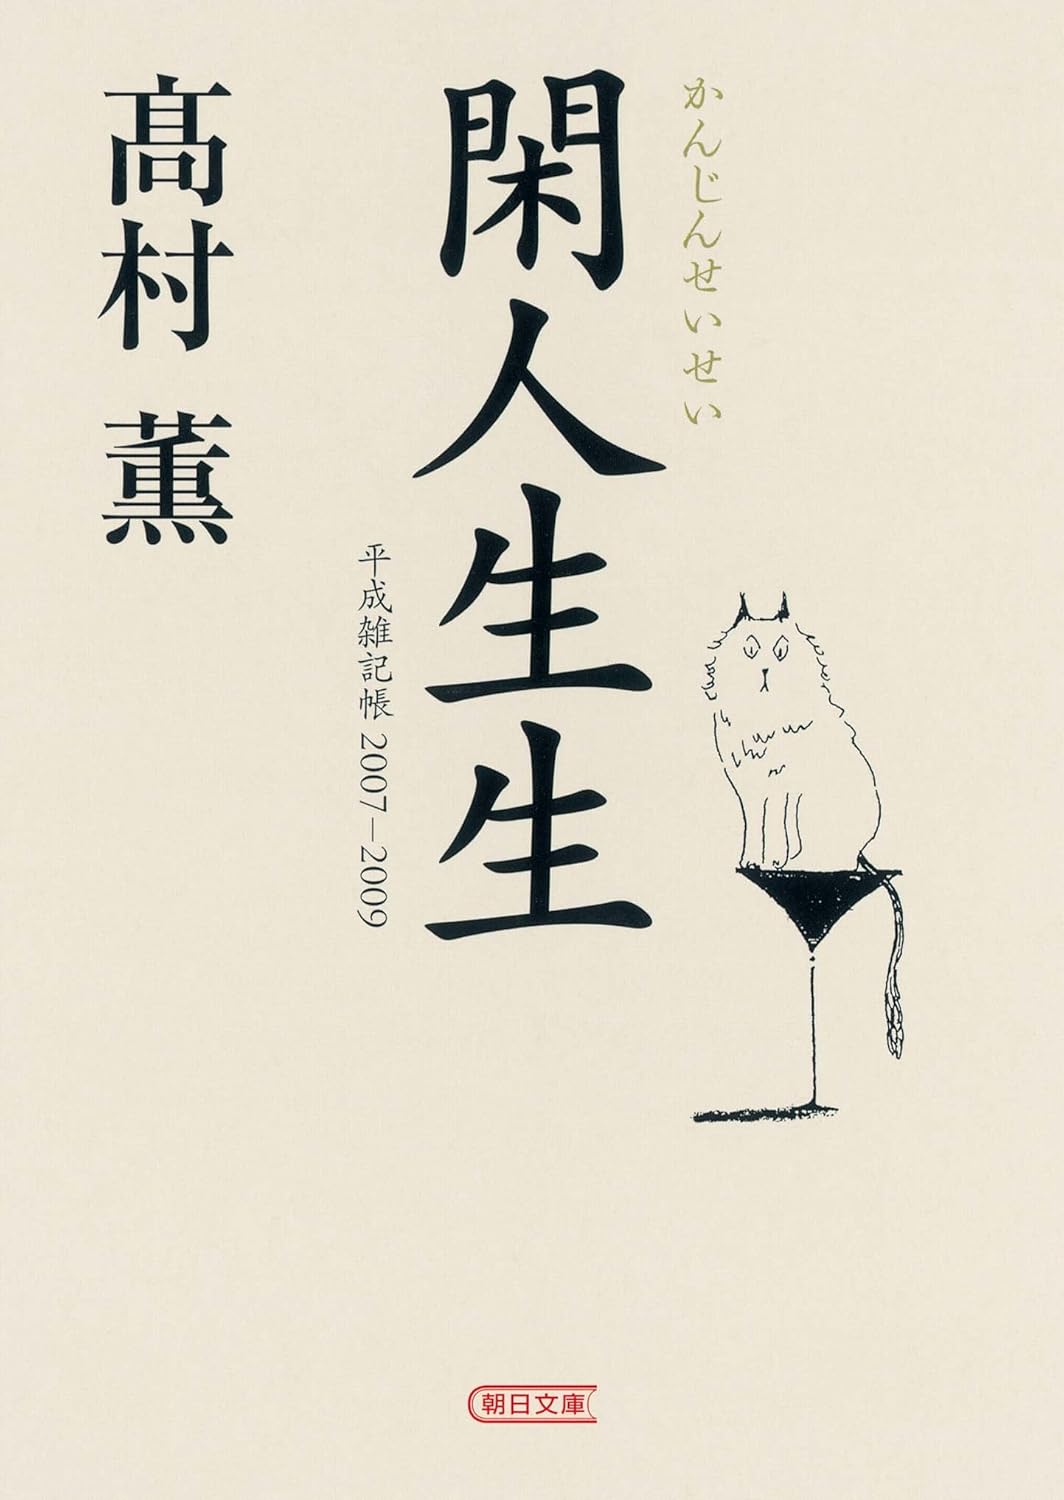 かんじんせいせい
閑人生生
平成雑記帳 2007―2009
髙村 薫
朝日文庫